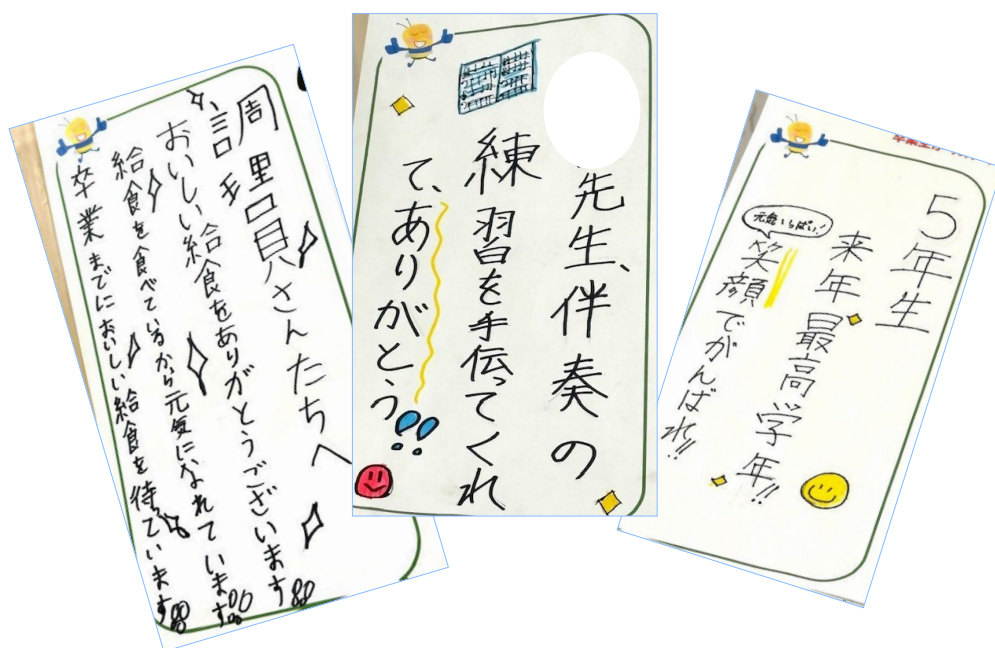 調理員さんたちへ
おいしい給食をありがとうございます!!
給食を食べているから元気になれています!!
卒業までにおいしい給食を待っています!!
先生、伴奏の
練習を手伝ってくれ
て、ありがとう!!
5年生
来年最高学年!!
元気いっぱい!
笑顔でがんばれ!!